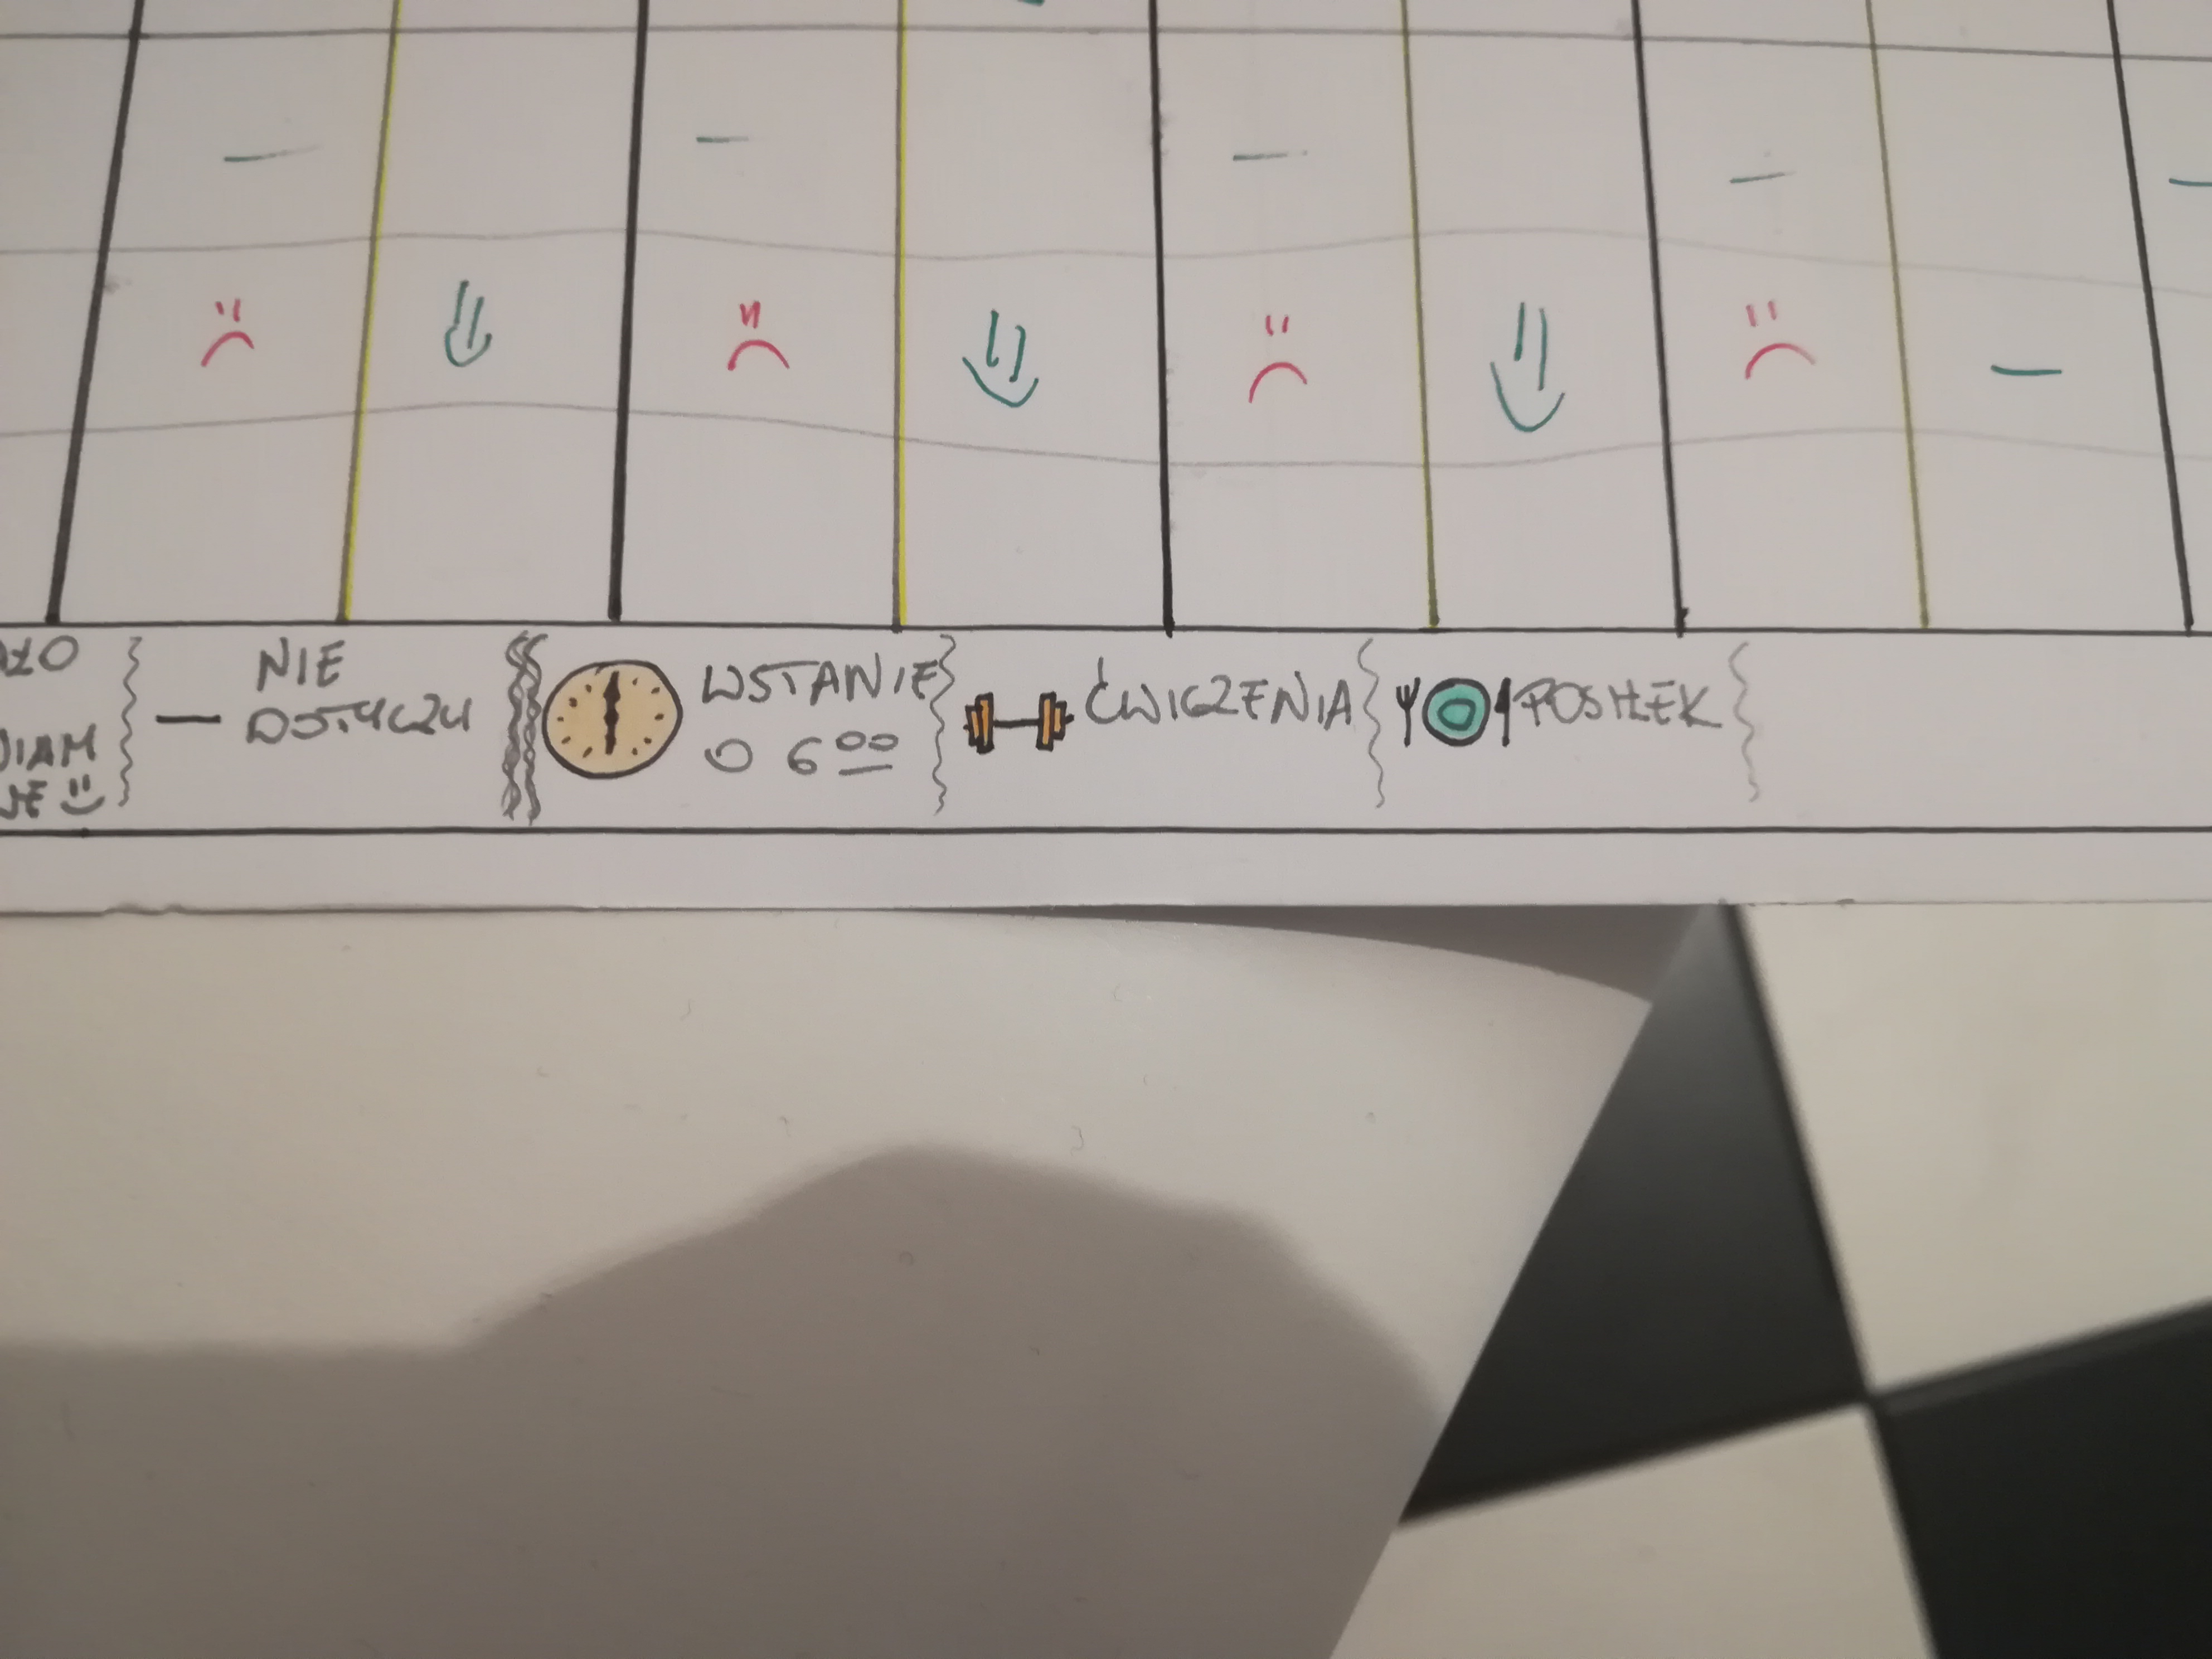 NIE
DOTYCZY
WSTANIE
O 6 00
ĆWICZENIA
POSIŁEK